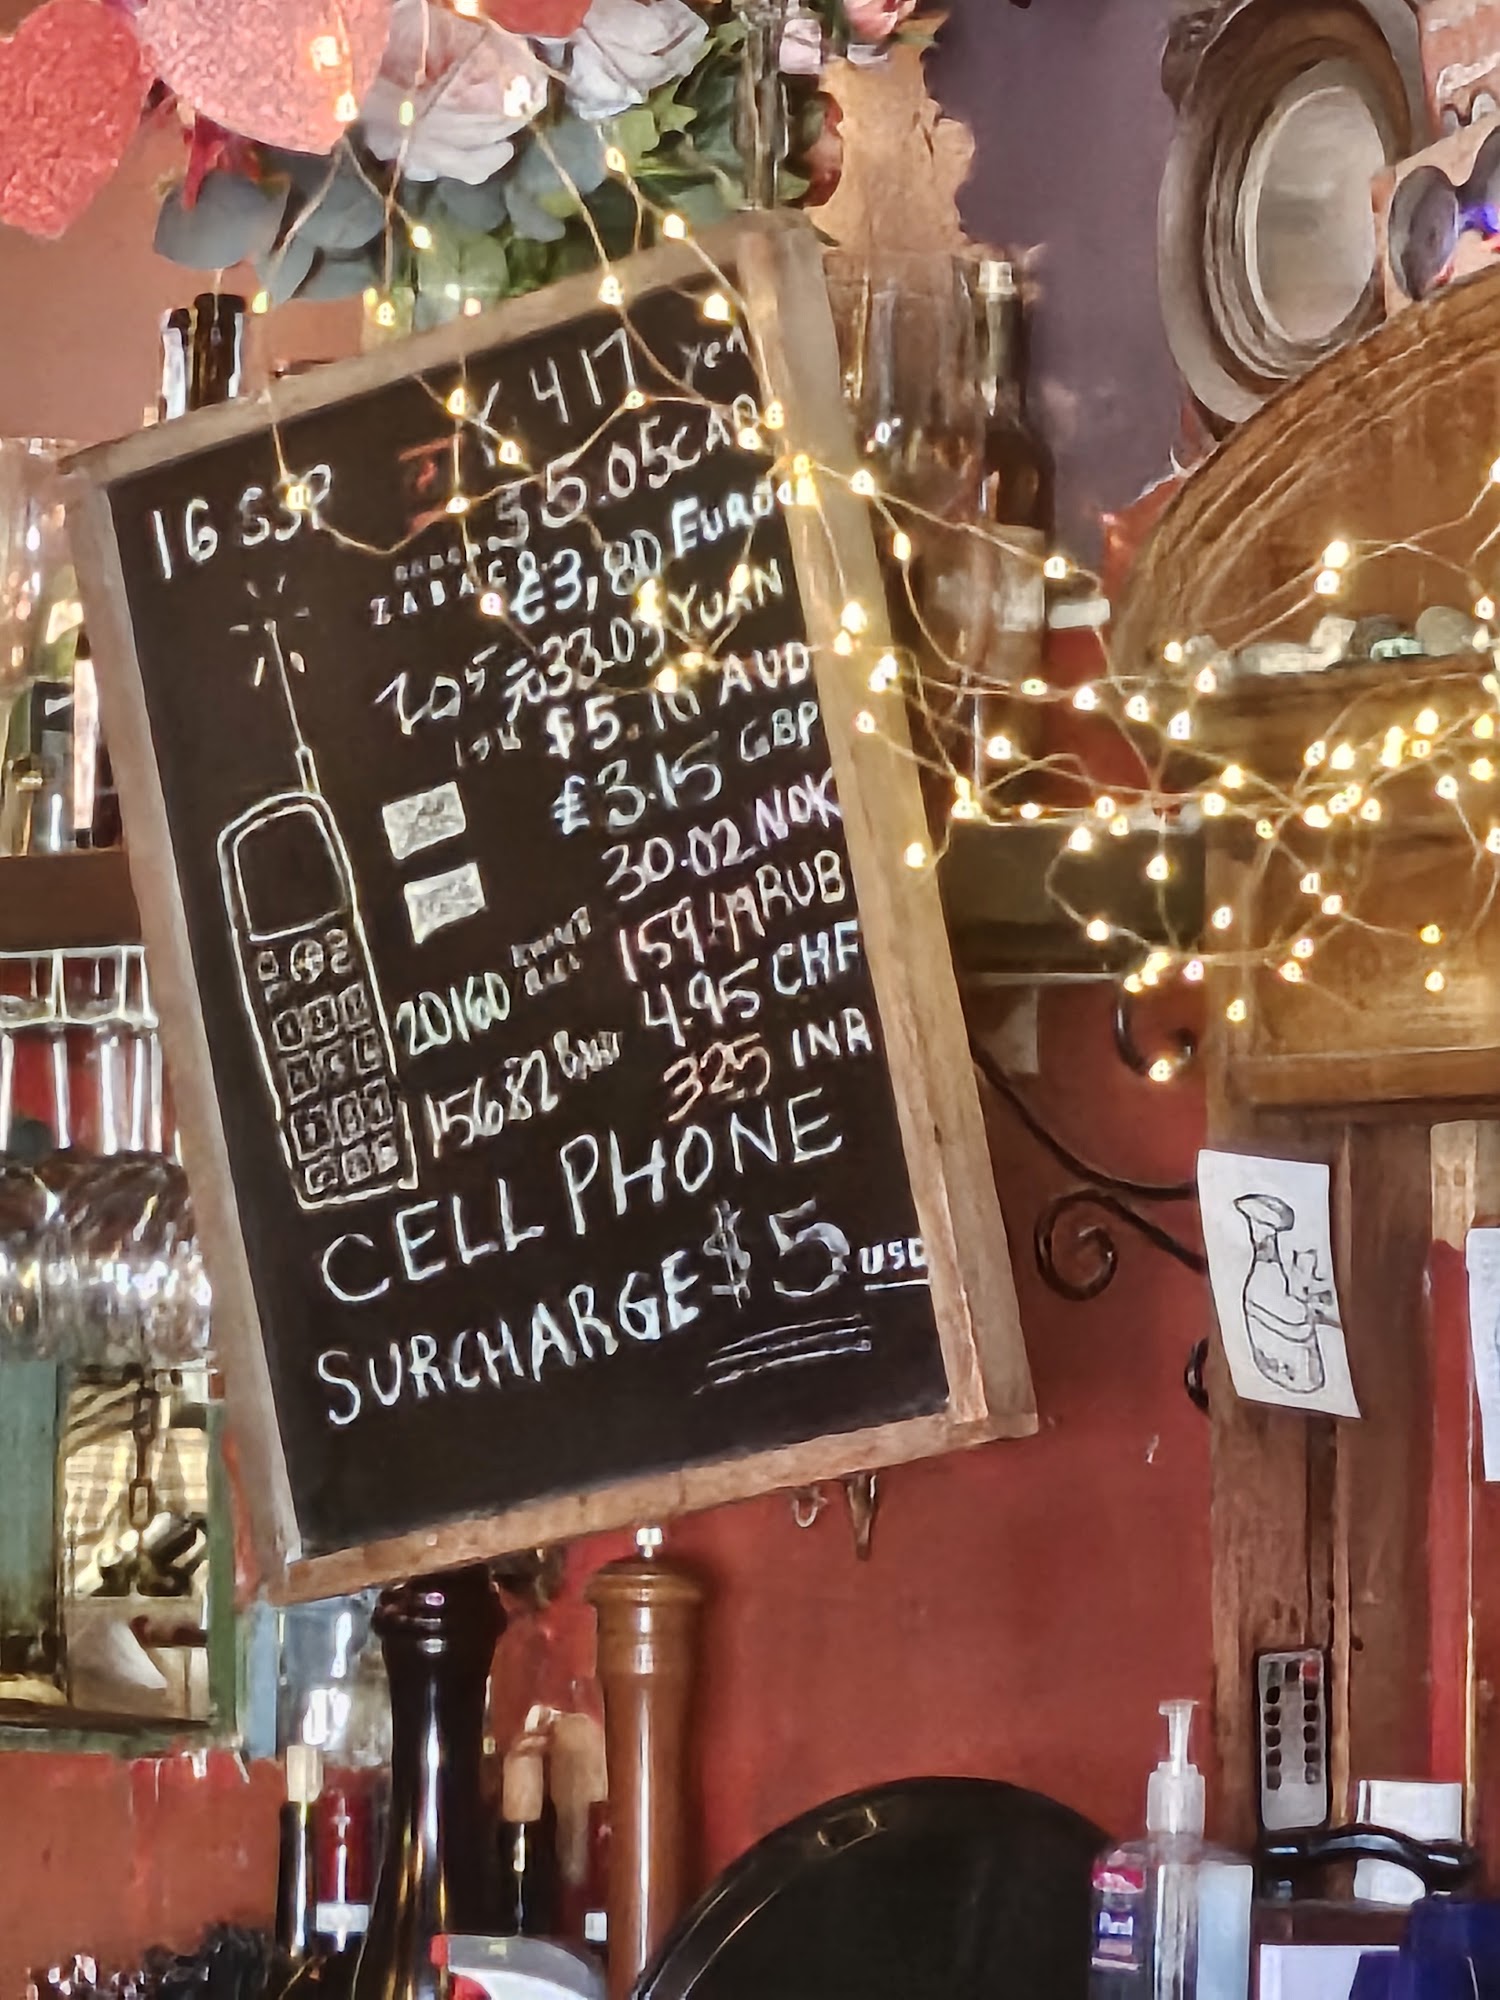 ¥ 417 yen
16 SSP
$5.05 CAD
€3,80 Euro
元33.03 YUAN
$5.10 AUD
£3.15 GBP
30.02 NOK
159.49 RUB
20160
4.95 CHF
15682
325 INR
CELL PHONE
SURCHARGE $5 USD